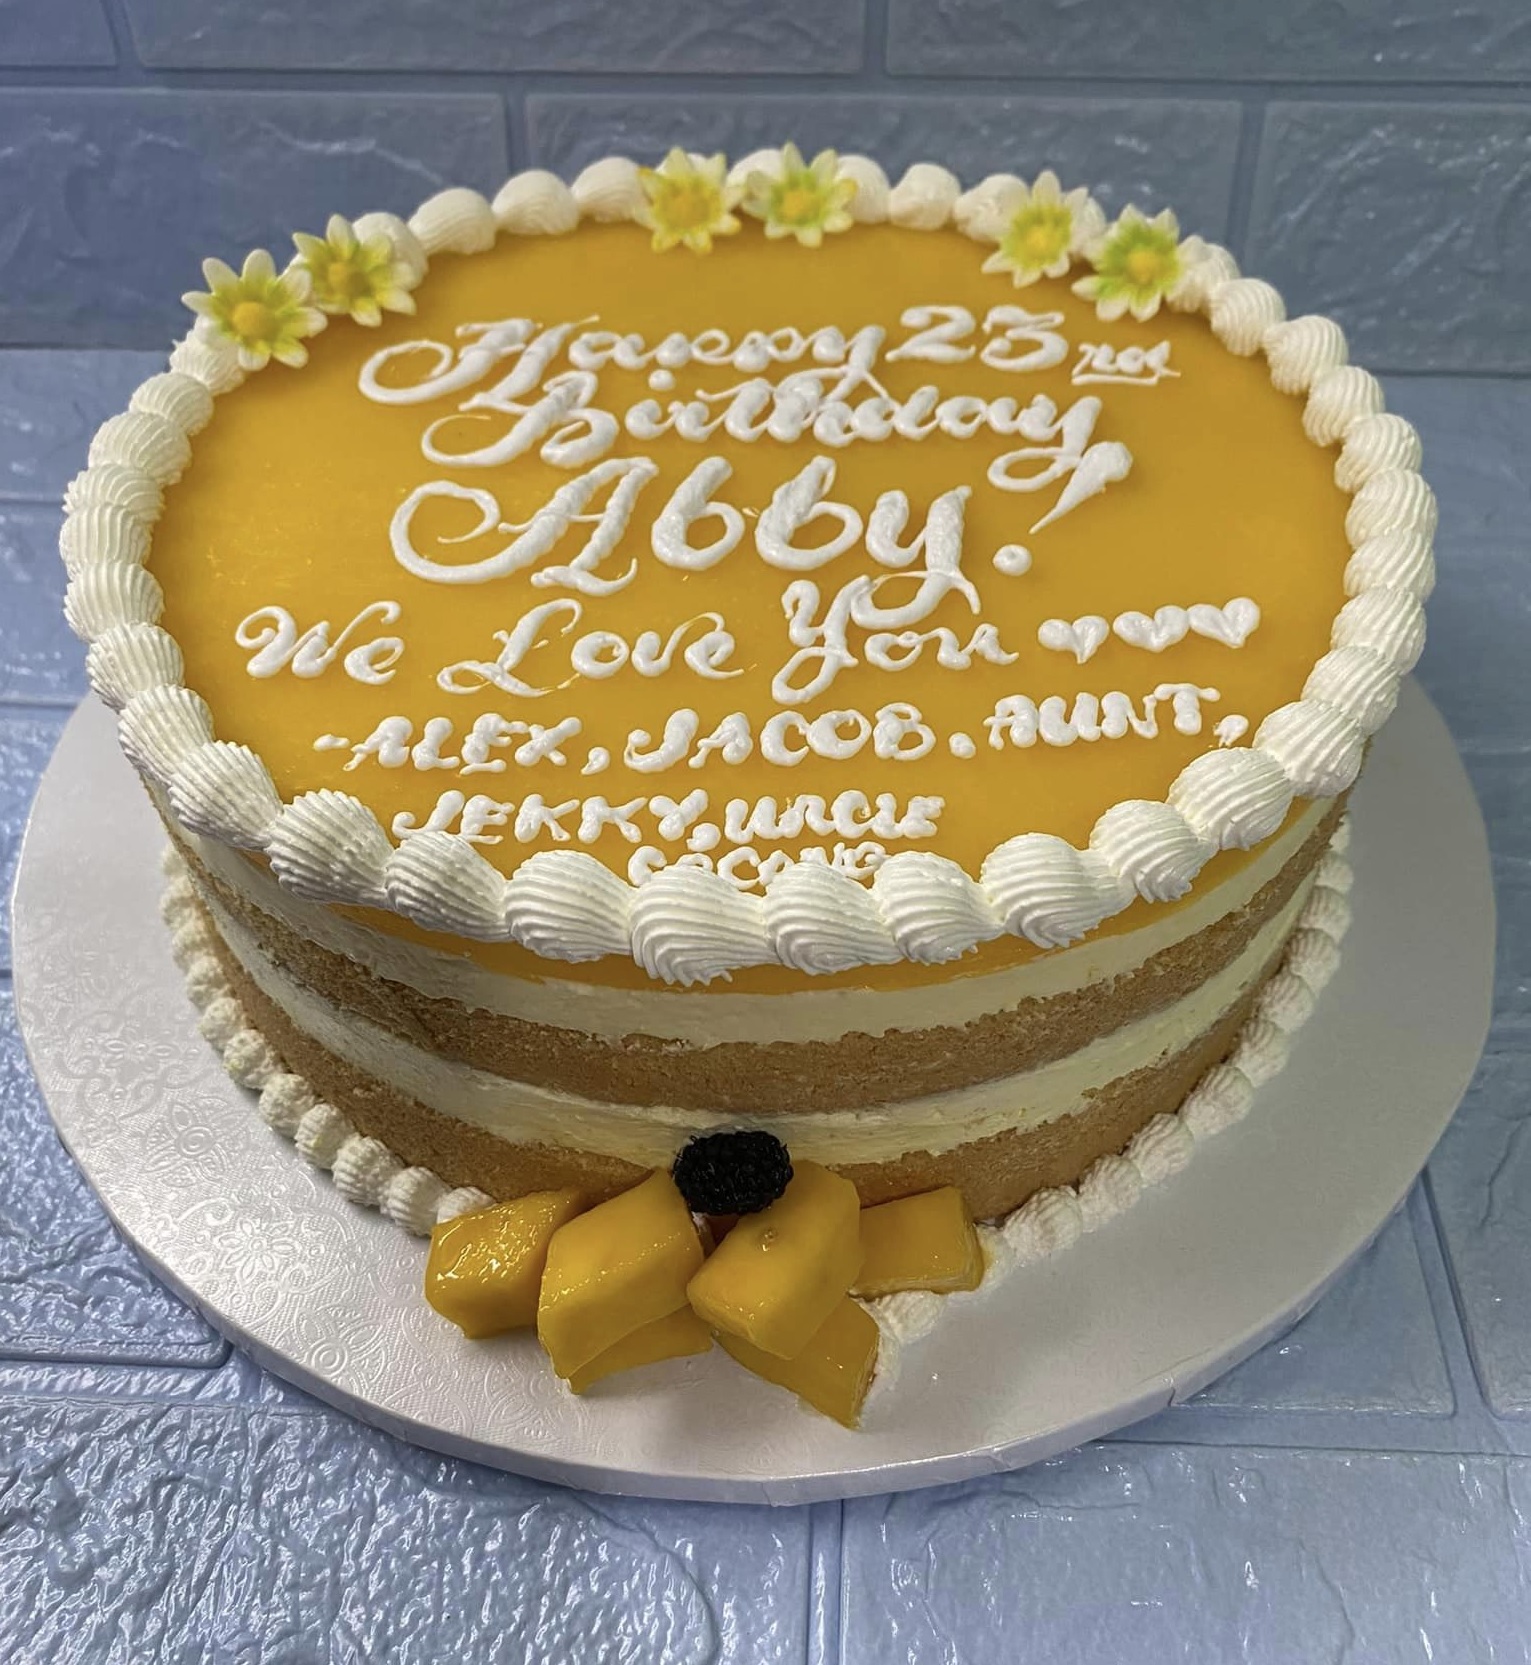 Happy 23rd
Birthday,
Abby!
We Love You ♥♥♥
-ALEX, JACOB, AUNT,
JEKKY, UNCLE